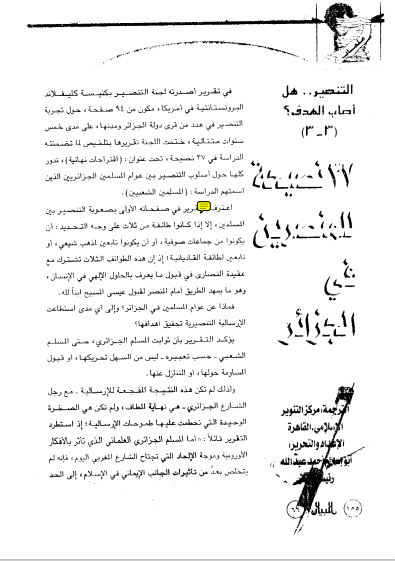 التنصير.. هل
أصاب الهدف؟
(٣-٣)
٣٧ نصيحة
للمنصرين
في
الجزائر
الترجمة: مركز التنوير
الإسلامي. القاهرة
الإعداد والتحرير:
أحمد عبدالله
في تقرير أصدرته لجنة التنصير بكنيسة كليفلاند
البروتستانتية في أمريكا، مكون من ٩٤ صفحة، حول تجربة
التنصير في عدد من قرى دولة الجزائر ومدنها، على مدى خمس
سنوات متتالية، ختمت اللجنة تقريرها بتلخيص لما تضمنته
الدراسة في ٣٧ نصيحة، تحت عنوان: (اقتراحات نهائية)، تدور
كلها حول أسلوب التنصير بين عوام المسلمين الجزائريين الذين
أسمتهم الدراسة: (المسلمين الشعبيين).
اعترف في صفحاته الأولى بصعوبة التنصير بين
المسلمين، إلا إذا كانوا طائفة من ثلاث على وجه التحديد: أن
يكونوا من جماعات صوفية، أو أن يكونوا تابعين لمذهب شيعي، أو
تابعين لطائفة القاديانية؛ إذ إن هذه الطوائف الثلاث تشترك مع
عقيدة النصارى في قبول ما يعرف بالحلول الإلهي في الإنسان،
وهو ما يمهد الطريق أمام المنصر لقبول عيسى المسيح ابناً لله.
فماذا عن عوام المسلمين في الجزائر؟ وإلى أي مدى استطاعت
الإرسالية التنصيرية تحقيق أهدافها؟
يؤكد التقرير بأن ثوابت المسلم الجزائري، حتى المسلم
الشعبي - حسب تعبيره - ليس من السهل تحريكها، أو قبول
المساومة حولها، أو التنازل عنها.
ولذلك لم تكن هذه النتيجة المفجعة للإرسالية - مع رجل
الشارع الجزائري - هي نهاية المطاف، ولم تكن هي الصخرة
الوحيدة التي تحطمت عليها طموحات الإرسالية؛ إذ استطرد
التقرير قائلاً: «أما المسلم الجزائري العلماني الذي تأثر بالأفكار
الأوروبية وموجة الإلحاد التي تجتاح الشارع المغربي اليوم، فإنه لم
يتخلص بعد من تأثيرات الجانب الإيماني في الإسلام، إلى الحد
البيان ١٥٥
٦٩